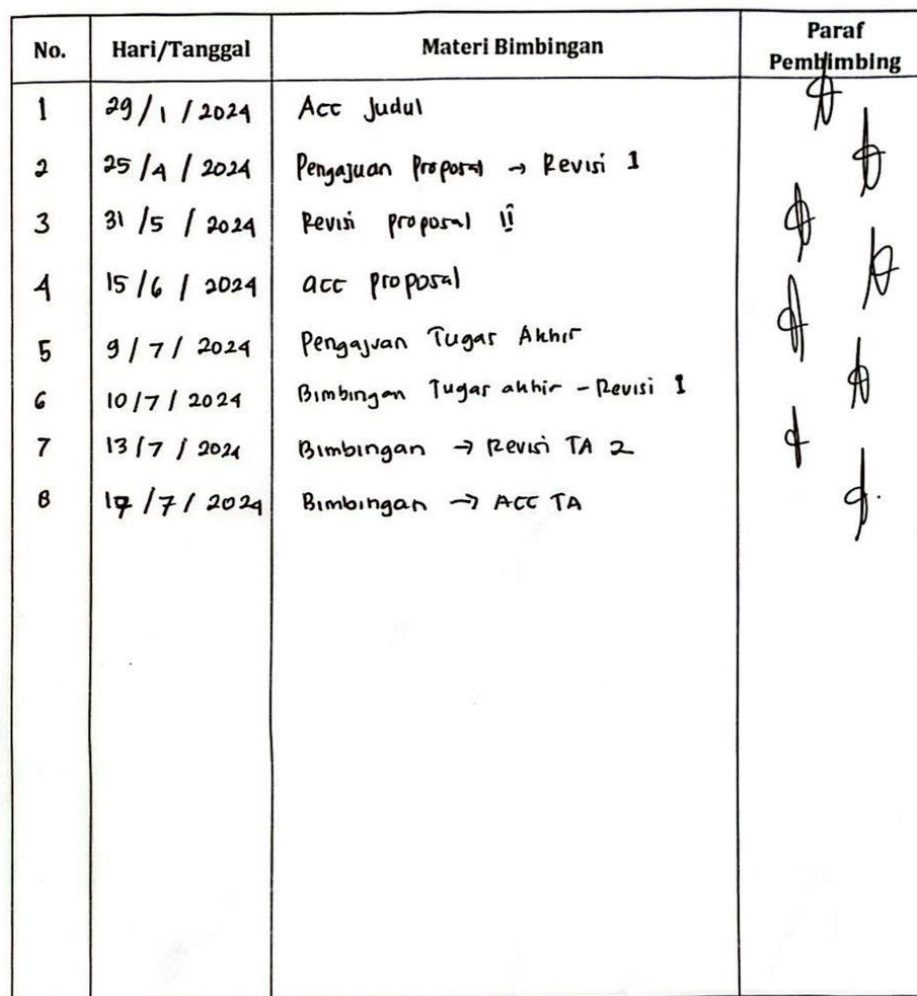 No. Hari/Tanggal Materi Bimbingan Paraf Pembimbing
1 29/1/2024 Acc Judul
2 25/4/2024 Pengajuan Proposal → Revisi 1
3 31/5/2024 Revisi proposal II
4 15/6/2024 acc proposal
5 9/7/2024 Pengajuan Tugas Akhir
6 10/7/2024 Bimbingan Tugas akhir - Revisi 1
7 13/7/2024 Bimbingan → Revisi TA 2
8 17/7/2024 Bimbingan → ACC TA